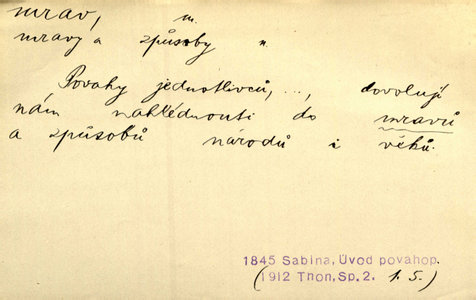 mrav, m.
mravy a způsoby n.
Povahy jednotlivců, ..., dovolují
nám nahlédnouti do mravů
a způsobů národů i věků.
1845 Sabina, Úvod povahop.
(1912 Thon, Sp. 2. 1.5.)